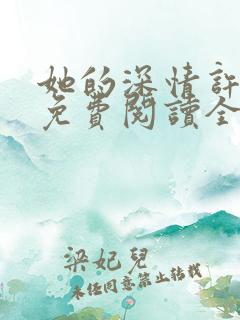 她的深情許
免費閱讀全
梁妃兒
未經同意禁止轉載